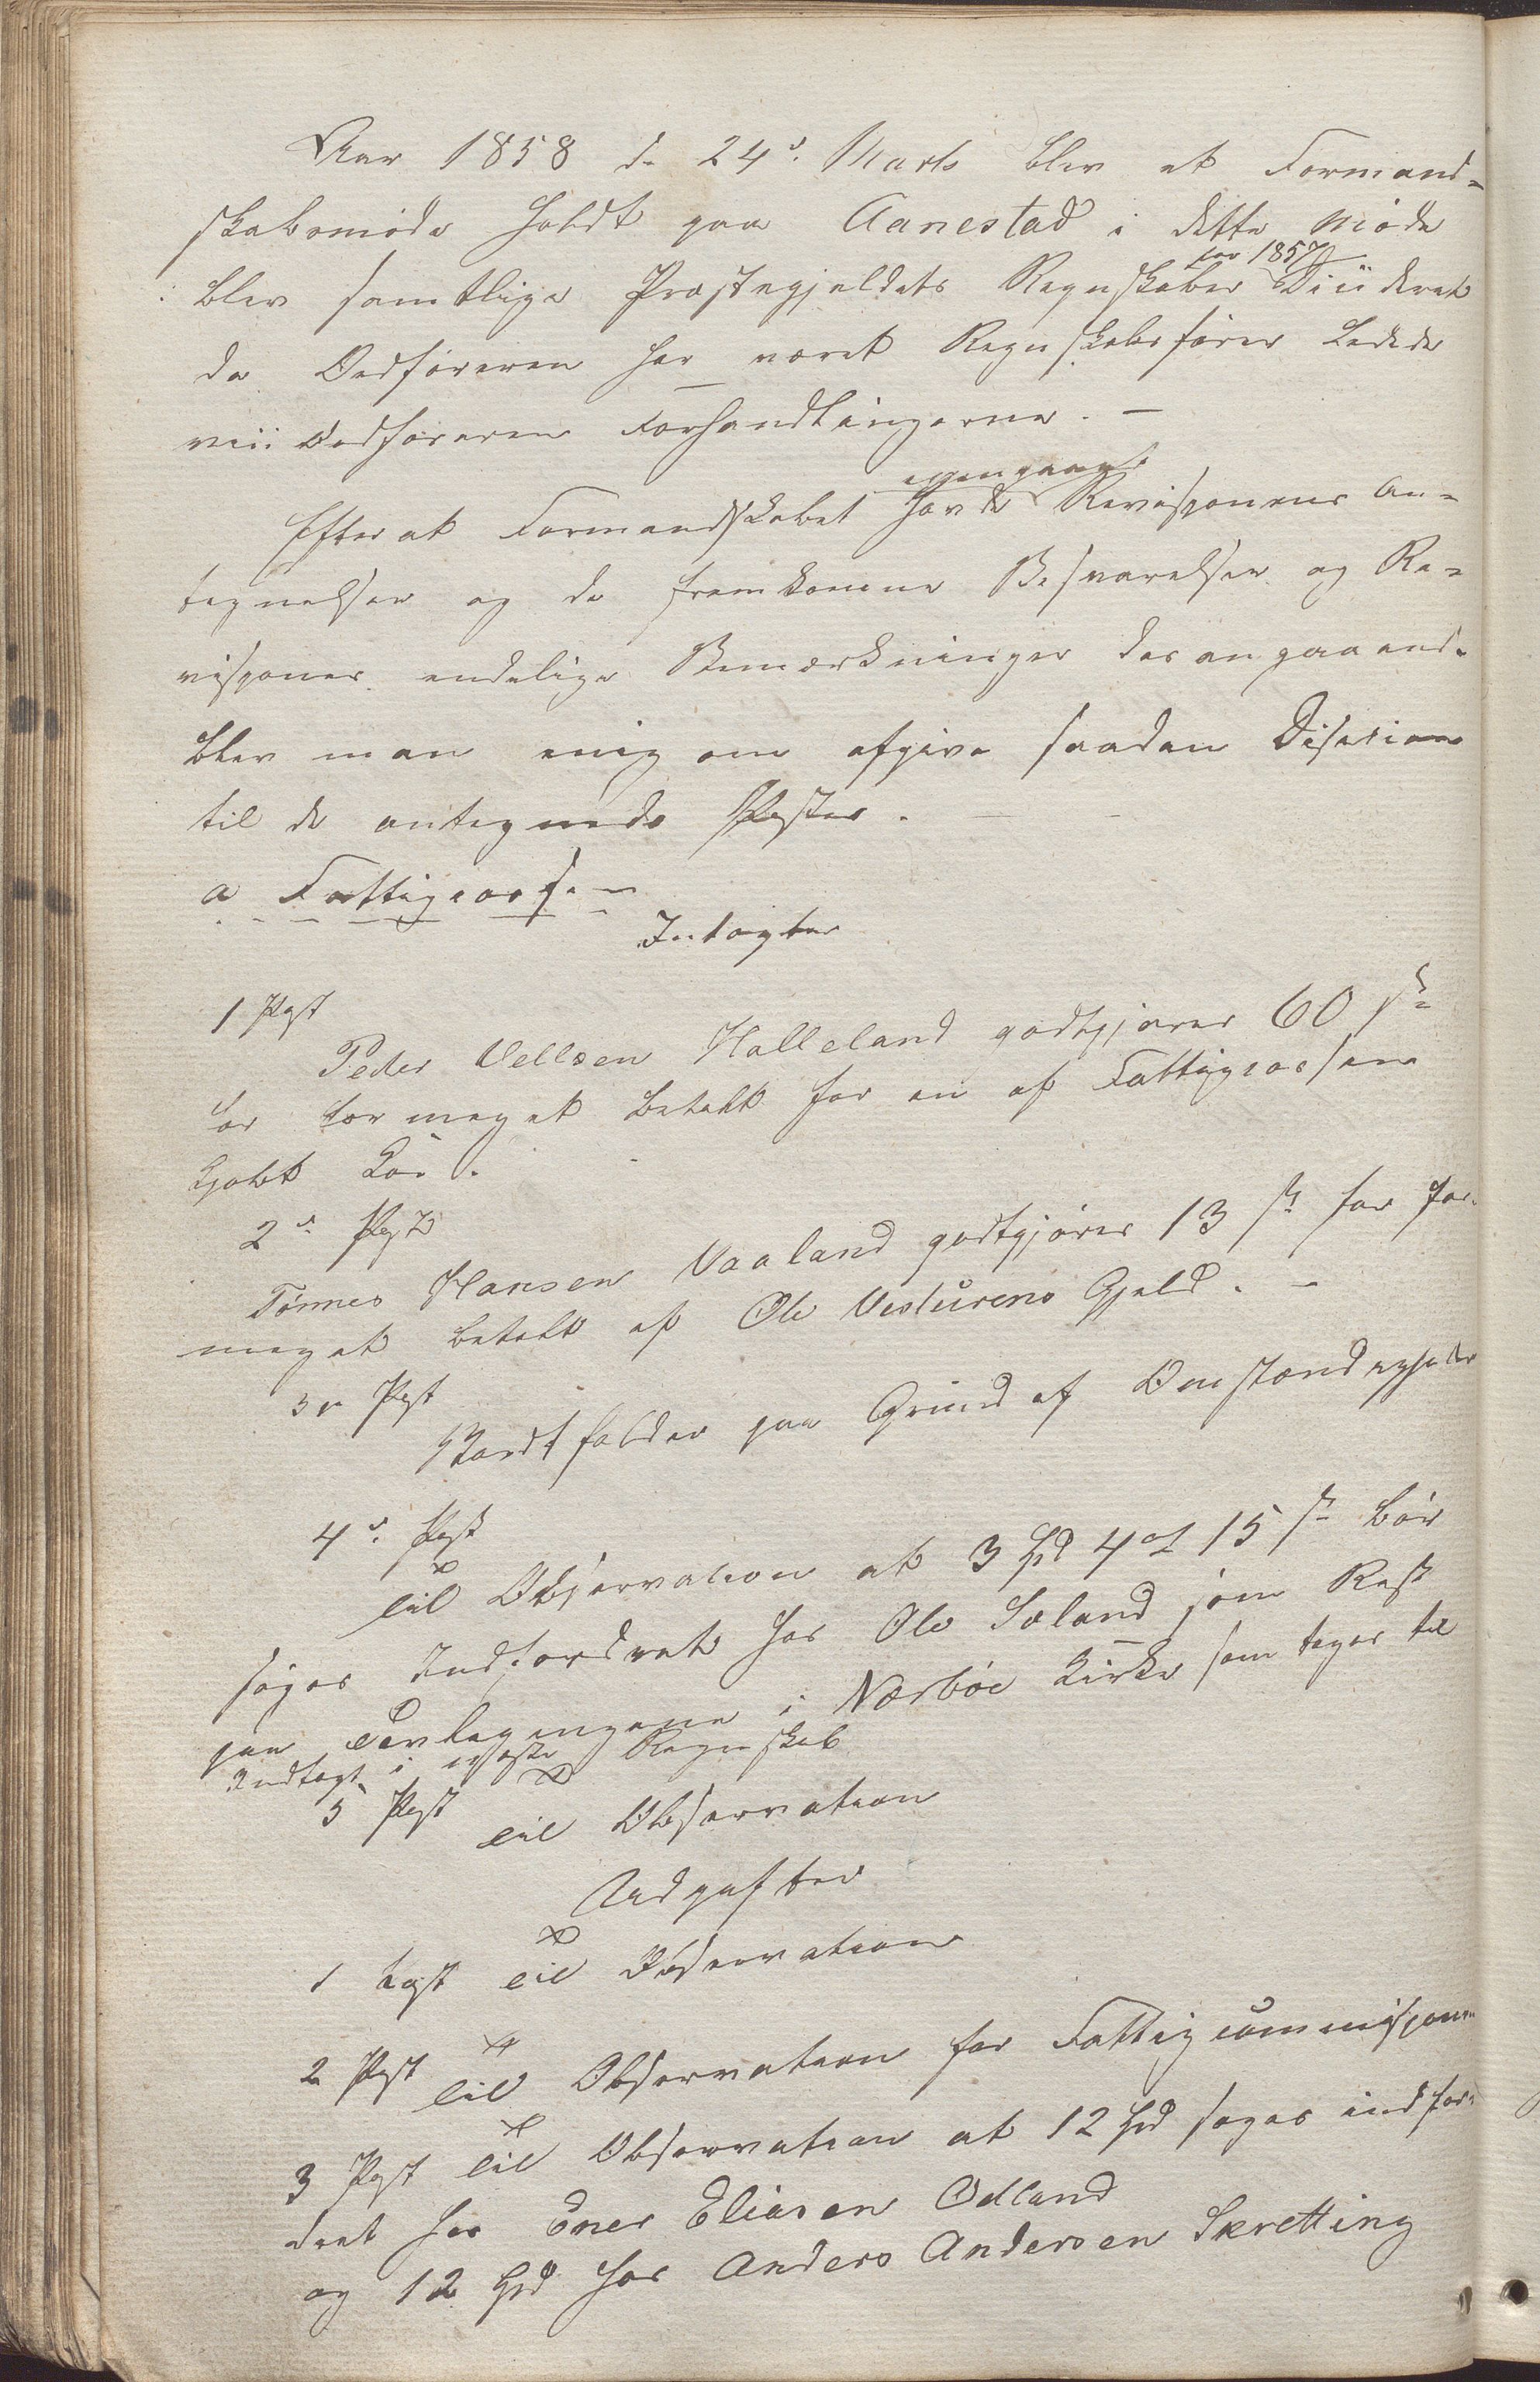 Aar 1858 d. 24de Marts blev et Formand-
skabsmöde holdt paa Aanestad i dette Möde
for 1857
blev samtlige Præstegjeldets Regnskaber Diideret
da Ordföreren har været Regnskabsförer Ledede
viiordföreren Forhandlingerne. —
igjennemgaaet
Efter at Formandskabet havde Revisjonens An-
tegnelser og de fremkomne Besvarelser og Re-
visjonens endelige Bemærkninger der angaaend.
blev man enig om afgive saadan Disesion
til de antegnede Poster. —
a Fattigcassen
Indtægter
1 Post
Peder Vellsen Halleland godtgjörer 60 sk
for for meget betalt for en af Fattigcassen
Kjöbt Ko.
2n Post
Tönnes Hansen Vaaland godtgjörer 13 sk for for
meget betalt af Ole Vestureno Gjeld. —
3n Post
Bordtfalder paa Grund af Omstændigheder
4de Post
Til Observasion at 3 Spd 4 ort 15 sk bör
söges Indfordret hos Ole Søland som Rest
paa Tavlepengene i Nærböe Kirke som tages til
Indtægt i næste Regnskab
5 Post Til Observation
Udgifter
1 Post Til Observation
2 Post Til Observation for Fattigcommisjonen
3 Post Til Observation at 12 Spd söges indfor-
dret hos Ener Eliasen Odland
og 12 Spd hos Anders Andersen Skretting